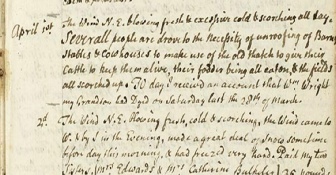 April 1st The Wind N.E. blowing fresh & excessive cold & scorching all day
Severall people are drove to the necessity of unroofing of Barns
Stables & Cowhouses to make use of the old thatch to give their
Cattle to keep them alive, their fodder being all eaten, & the fields
all scorched up. To day I receiv'd an account that Wm Wright
my Grandson had Dyed on Saturday last the 28th of March.
2d. The Wind N.E. blowing fresh, cold, & scorching, the Wind came to
W. & by S in the Evening, made a great deal of Snow sometime
this day this morning, & had freezd very hard. Paid my two
Sisters, Mrs Edwards & Mrs Catherine Bulkeley 25 pound